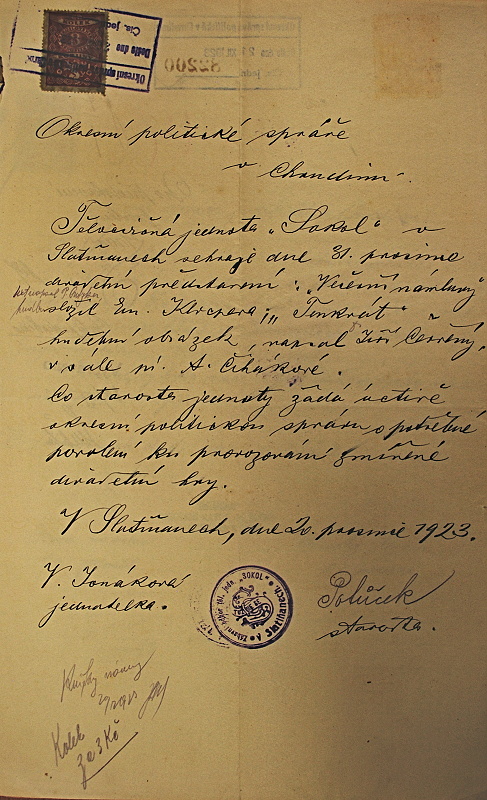 Okresní politické správě
v Chrudimi.
Tělocvičná jednota „Sokol“ v
Slatiňanech sehraje dne 31. prosince
divadelní představení: „Večerní námluvy“
složil Em. Klicpera; „Tenkrát“ -
hudební obrázek, napsal Jiří Červený,
v sále pí. A. Čihákové.
Co starosta jednoty žádá uctivě
okresní politickou správu o potřebné
povolení ku provozování zmíněné
divadelní hry.
V Slatiňanech, dne 20. prosince 1923.
V. Jonáková
jednatelka.
Poluček
starosta.
"SOKOL" v Slatiňanech
32200
Okresní
Došlo dne
Čís. jed
Kolek
za 3 Kč